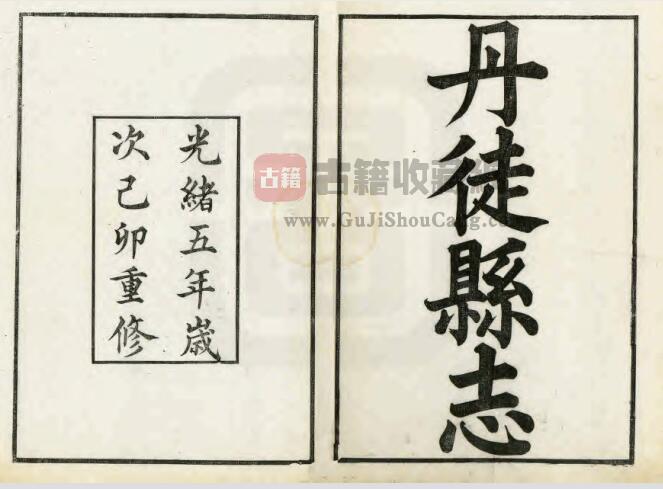 丹徒縣志
光緒五年歲
次己卯重修
古籍
古籍收藏
www.GuJiShouCang.com